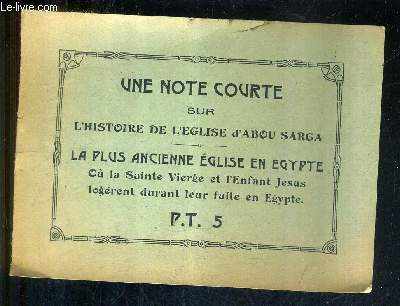 Le-livre.com
UNE NOTE COURTE
SUR
L'HISTOIRE DE L'EGLISE d'ABOU SARGA
LA PLUS ANCIENNE ÉGLISE EN EGYPTE
Où la Sainte Vierge et l'Enfant Jesus
logérent durant leur fuite en Egypte.
P.T. 5